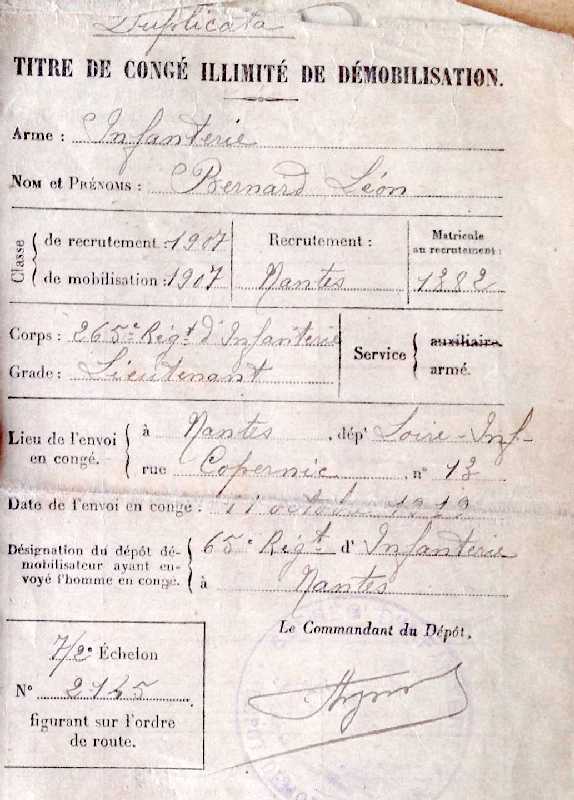 Duplicata
TITRE DE CONGÉ ILLIMITÉ DE DÉMOBILISATION.
Arme : Infanterie
NOM et PRÉNOMS : Bernard Léon
Classe
de recrutement : 1907
de mobilisation : 1907
Recrutement :
Nantes
Matricule
au recrutement :
1382
Corps : 265e Régt d'Infanterie
Grade : Lieutenant
Service
auxiliaire
armé.
Lieu de l'envoi
en congé.
à Nantes, dépt Loire-Inf-
rue Copernic, n° 13
Date de l'envoi en congé : 11 octobre 1919
Désignation du dépôt dé-
mobilisateur ayant en-
voyé l'homme en congé.
65e Régt d'Infanterie
à Nantes
Le Commandant du Dépôt,
7/2e Échelon
N° 2145
figurant sur l'ordre
de route.